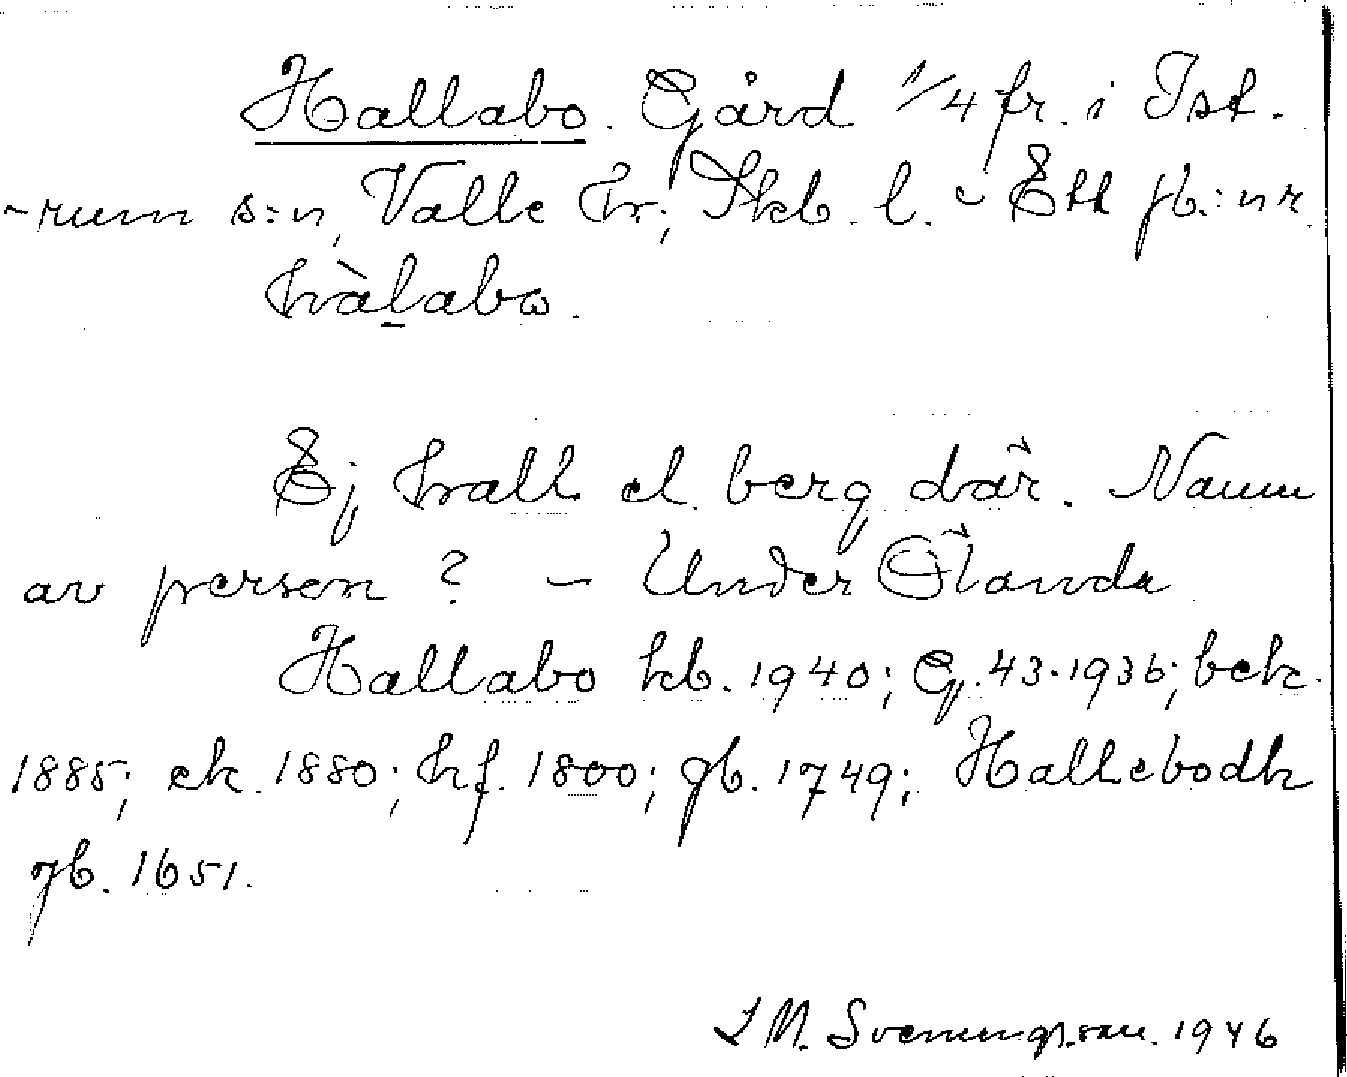 Hallabo. Gård 1/4 fr. i Ist-
-rum s:n, Valle hr; Skb. l. – Ett jb:nr
hàlabo.
Ej häll el. berg där. Namn
av person? – Under Ölanda
Hallabo kb. 1940; G. 43. 1936; bek.
1885; ek. 1880; hf. 1800; jb. 1749; Hallebodh
jb. 1651.
L M. Svenungsson. 1946